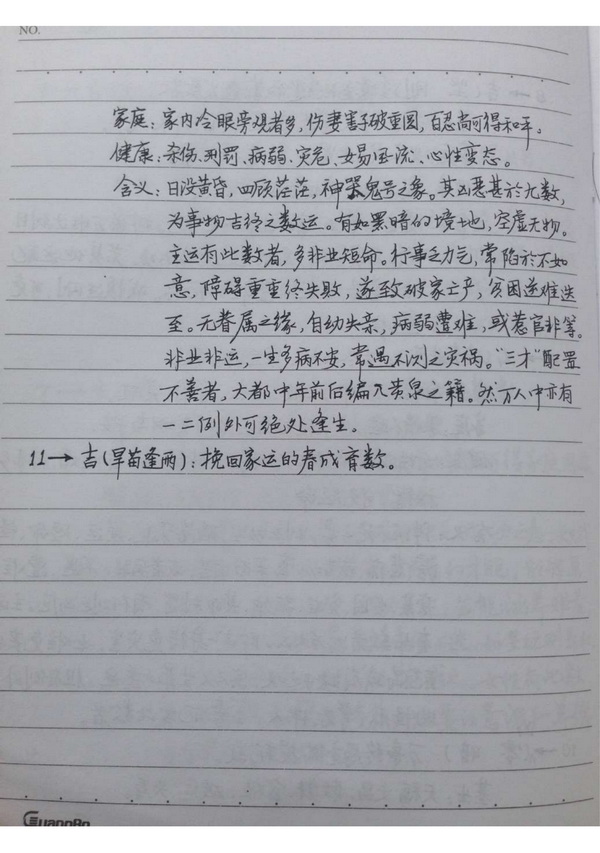 NO.
家庭：家内冷眼旁观者多，伤妻害子破重圆，百忍尚可得和平。
健康：杂伤、刑罚、病弱、灾危、女易因流、心性变态。
含义：日没黄昏，四顾茫茫，神哭鬼号之象。其凶恶甚於九数，
为事物吉终之数运。有如黑暗的境地，空虚无物。
主运有此数者，多非业短命。行事乏力气，常陷於不如
意，障碍重重终失败，遂致破家亡产，贫困逆难迭
至。无眷属之缘，自幼失亲，病弱遭难，或惹官非等。
非业非运，一生多病不安，常遇不测之灾祸。“三才”配置
不善者，大都中年前后编入黄泉之籍。然万人中亦有
一二例外可绝处逢生。
11→ 吉（旱苗逢雨）：挽回家运的春成育数。
GuangBo